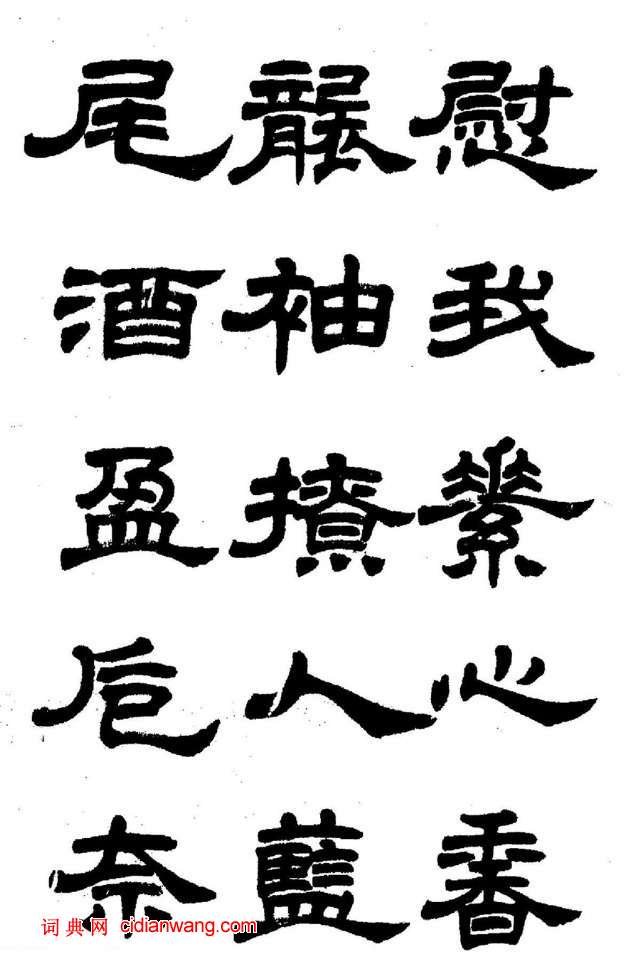 慰我素心香
襲袖撩人藍
尾酒盈卮奈
词典网 cidianwang.com